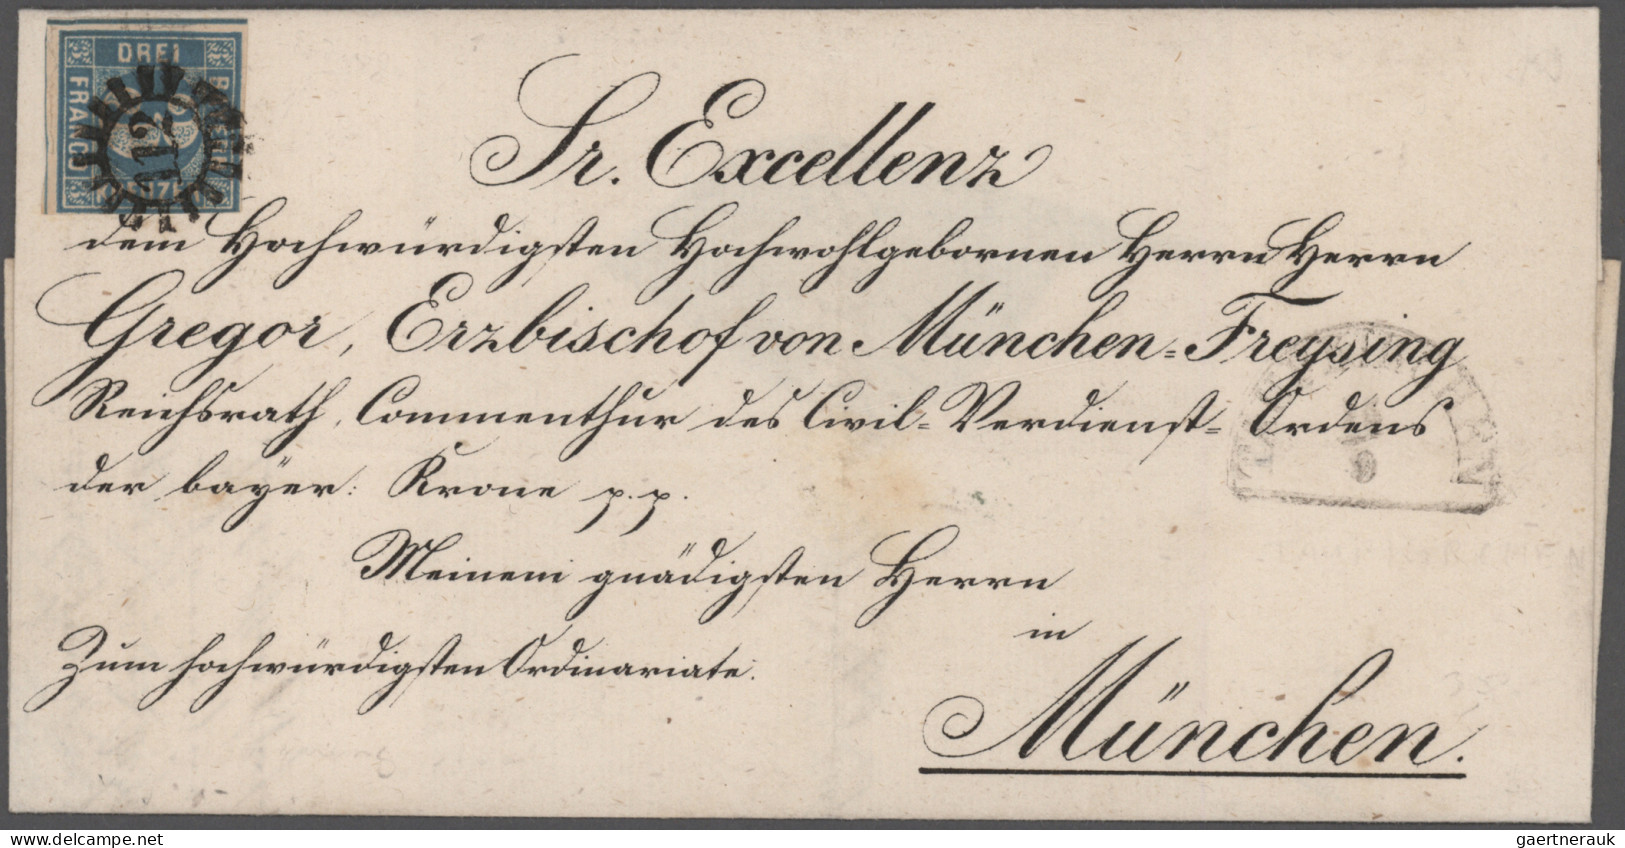 DREI
FRANCO
112
Sr. Excellenz
dem Hochwürdigsten Hochwohlgebornen Herrn Herrn
Gregor, Erzbischof von München=Freysing
Reichsrath, Commenthur des Civil=Verdienst=Ordens
der bayer: Krone p. p.
Meinem gnädigsten Herrn
in
Zum hochwürdigsten Ordinariate.
München.
www.delcampe.net
gaertnerauk